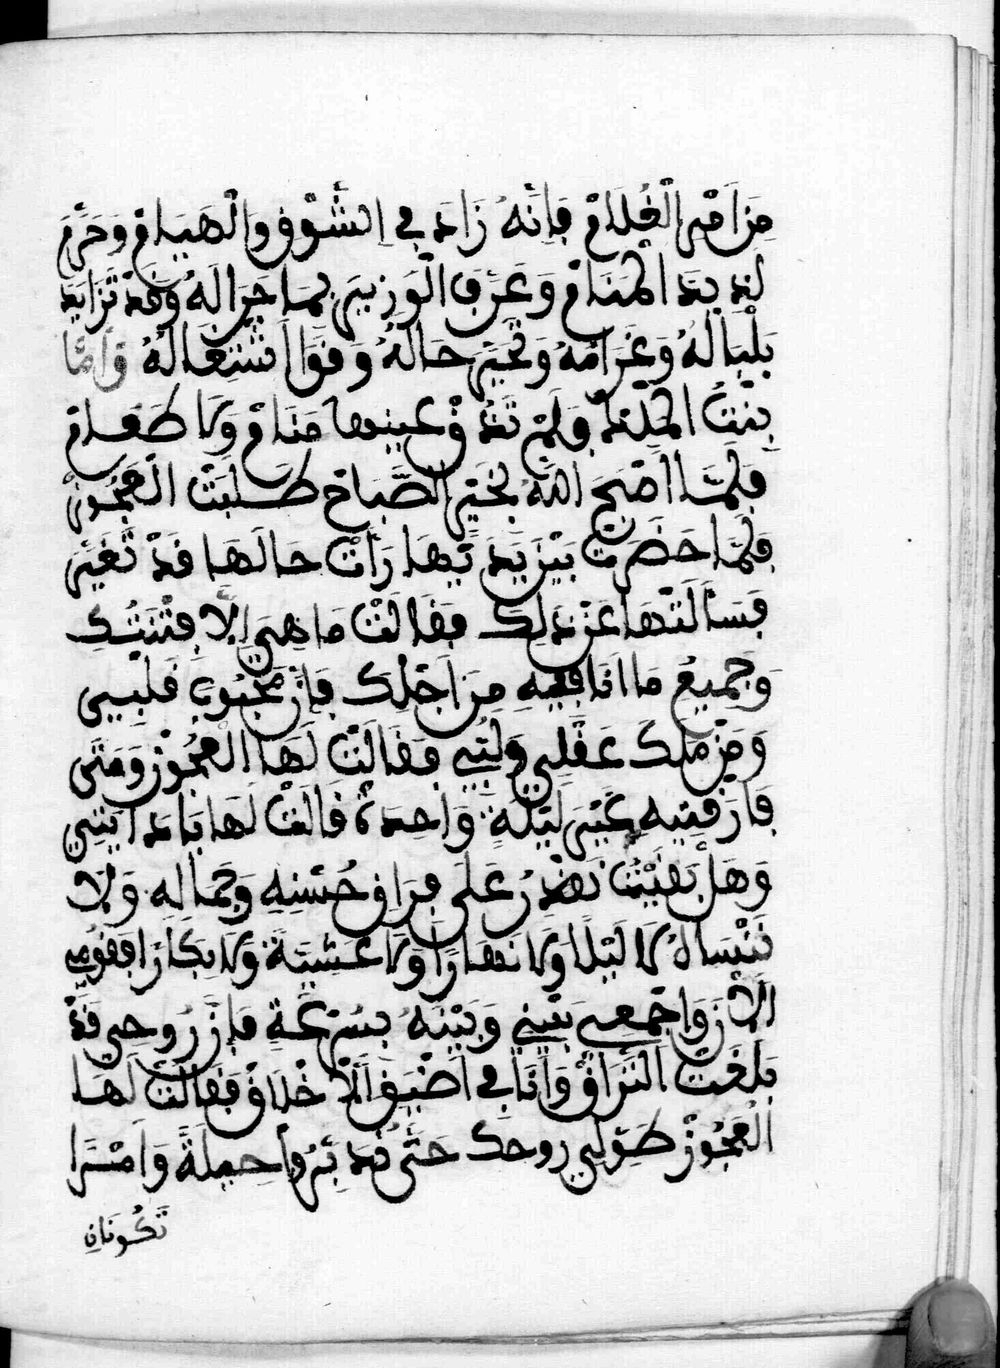 مَن اَمْرِ الْغُلَامْ فَإِنَّهُ زَادَ فِي الشَّوْقِ وَالْهَيَامْ وَحَرَّمَ
لذيذ المنَامْ وَعَرَّفَ الْوَزِيرَ بِمَا جَرَا لَهُ وَقَدْ تَزَايَدَ
بَلْبَالُهُ وَغَرَامُهُ وَتَغَيَّرَ حَالُهُ وَقَوَا اشْتِعَالُهُ وَأَمَّا
بِنْتُ الْمَلِكْ فَلَمْ تَذُقْ عينيها مَنَامْ وَلَا طَعَامْ
فَلَمَّا اَصْبَحَ اللَّهُ بِخَيْرِ الصَّبَاحْ طَلَبَتْ الْعَجُوزْ
فَلَمَّا حَضَرَتْ بَيْنَ يَدَيْهَا رَأَتْ حَالَهَا قَدْ تَغَيَّرْ
فَسَأَلَتْهَا عَنْ ذَلِكَ فَقَالَتْ مَا هِيَ إِلَّا فِتْنَتُكِ
وَجَمِيعُ مَا اَنَا فِيهِ مِنَ اَجْلِكَ فَإِنَّ مَحْبُوبَ قَلْبِي
وَمَنْ مَلَكَ عَقْلِي وَلُبِّي فَقَالَتْ لَهَا الْعَجُوزْ وَمَتَى
فَارَقْتِيهِ غَيْرَ لَيْلَةٍ وَاحِدَةْ قَالَتْ لَهَا يَا دَايَتِي
وَهَلْ بَقَيْتُ نَقْدَرُ عَلَى فِرَاقِ حُسْنِهِ وَجَمَالِهِ وَلَا
نَنْسَاهُ لَا لَيْلًا وَلَا نَهَارًا وَلَا عَشِيَّةً وَلَا بِكَارًا فَقُومِي
اَلْأَنْ وَاجْمَعِي بَيْنِي وَبَيْنَهُ بِسُرْعَةٍ فَإِنَّ رُوحِي قَدْ
بَلَغَتْ التَّرَاقْ وَأَنَا فِي اَضْيَقِ الْأَخْلَاقْ فَقَالَتْ لَهَا
الْعَجُوزْ طَوِّلِي رُوحَكِ حَتَّى نُدَبِّرُ حِيلَةً وَاَمْرًا
تَكُونَانِ